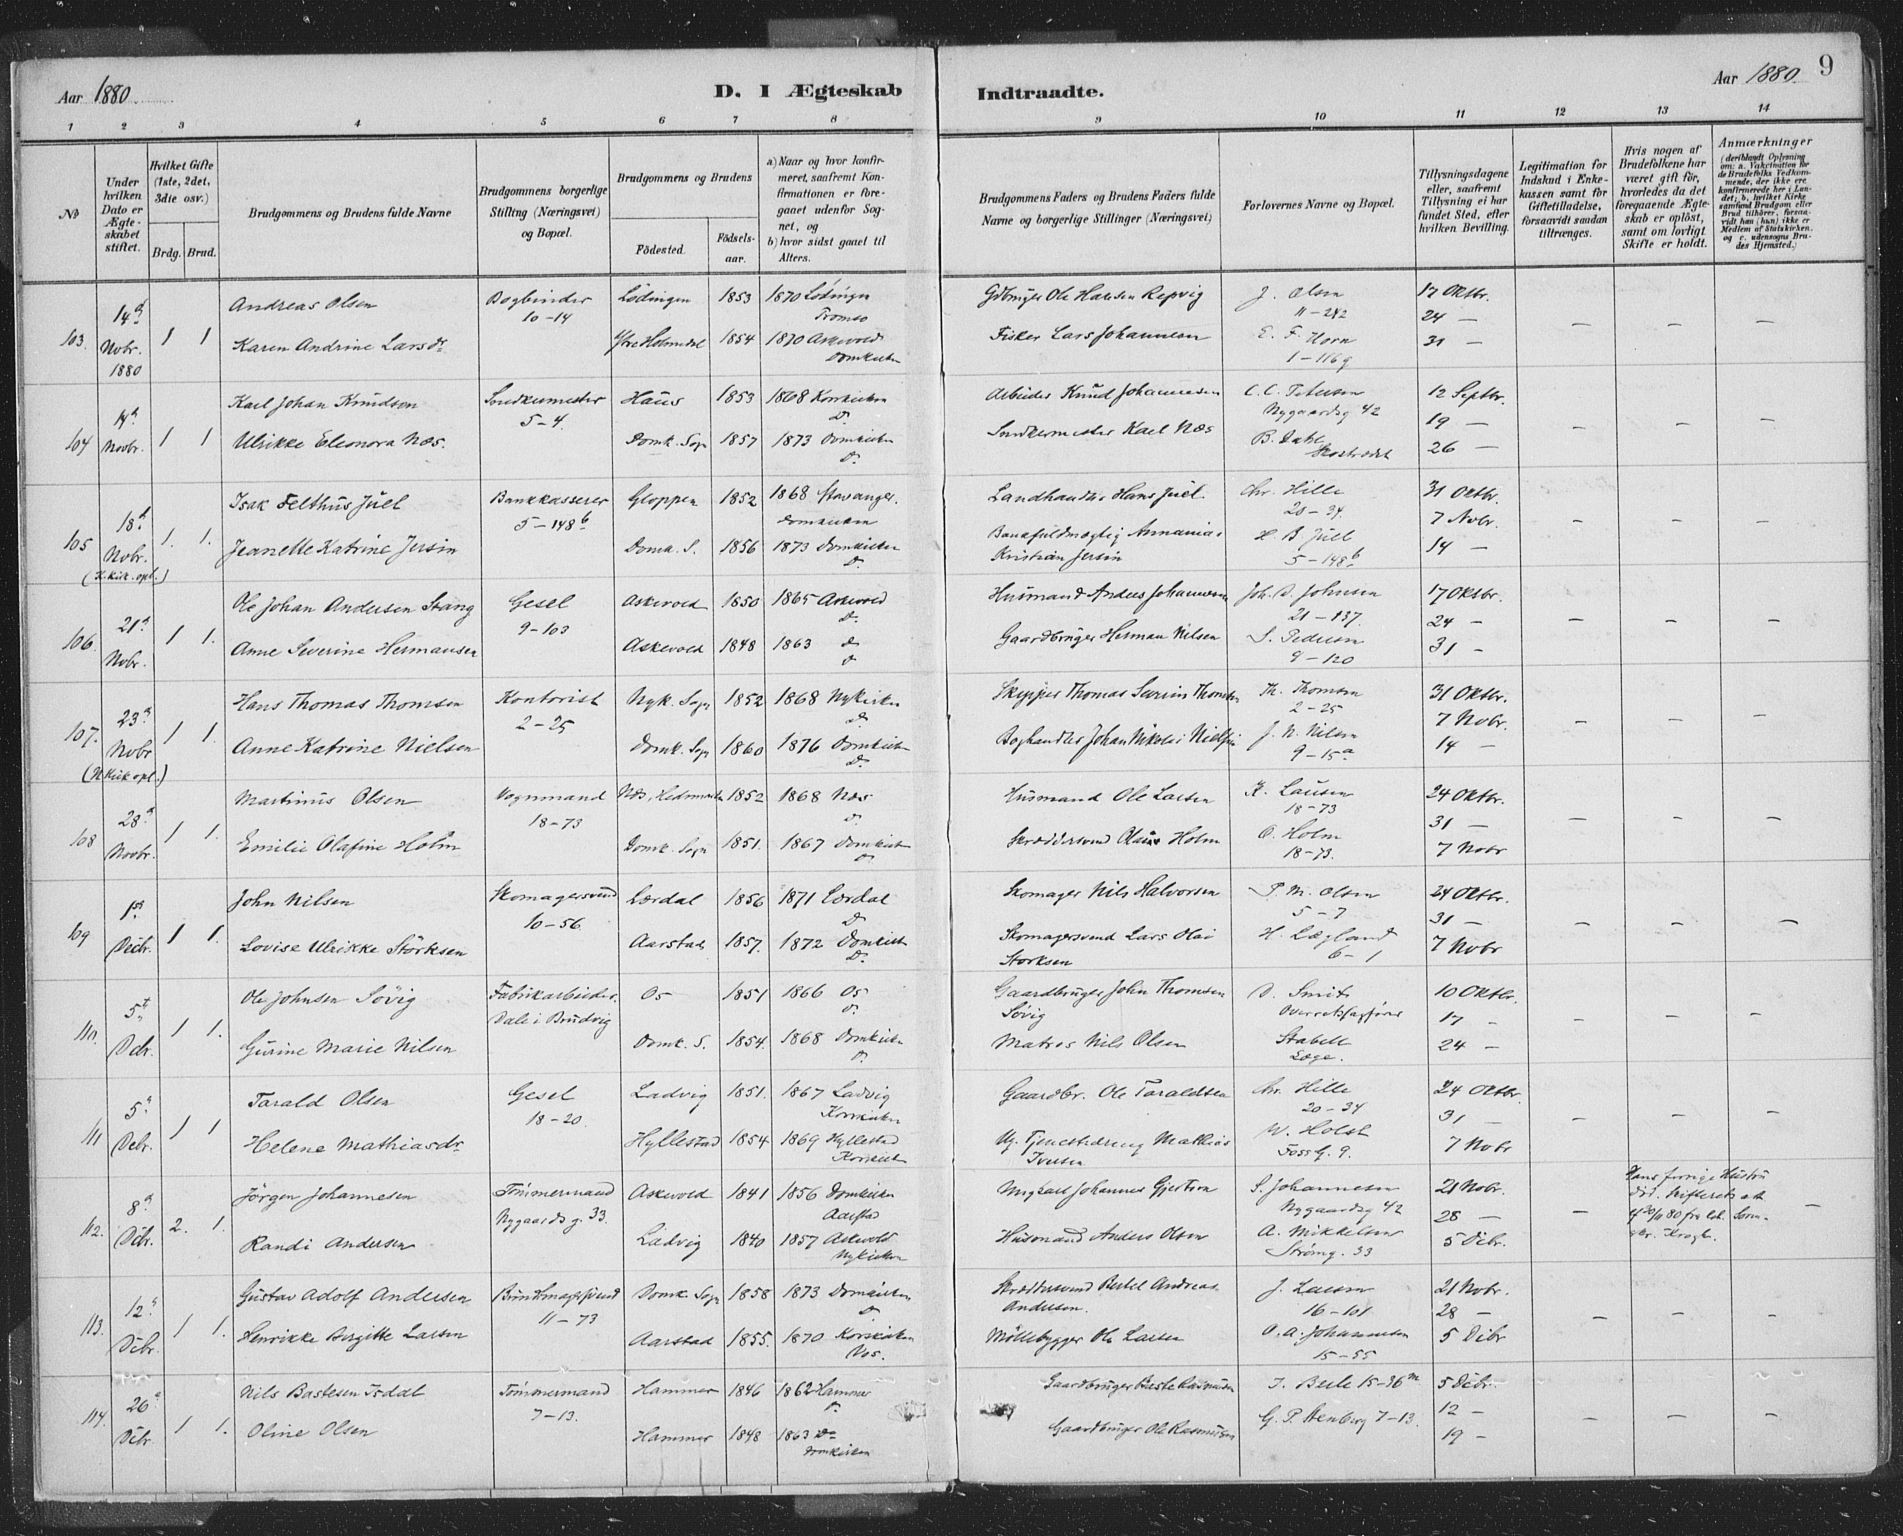 Aar 1880
D. I Ægteskab
Indtraadte.
Aar 1880. 9
1 2 3 4 5 6 7 8 9 10 11 12 13 14
No
Under hvilken Dato er Ægteskabet stiftet.
Hvilket Gifte (1ste, 2det, 3die osv.)
Brdg. Brud.
Brudgommens og Brudens fulde Navne
Brudgommens borgerlige Stilling (Næringsvei) og Bopæl.
Brudgommens og Brudens
Födested.
Födselsaar.
a) Naar og hvor konfirmeret, saafremt Konfirmationen er foregaaet udenfor Sognet, og
b) hvor sidst gaaet til Alters.
Brudgommens Faders og Brudens Faders fulde Navne og borgerlige Stillinger (Næringsvei)
Forlovernes Navne og Bopæl.
Tillysningsdagene eller, saafremt Tillysning ei har fundet Sted, efter hvilken Bevilling.
Legitimation for Indskud i Enkekassen samt for Giftetilladelse, forsaavidt saadan tiltrænges.
Hvis nogen af Brudefolkene har været gift för, hvorledes da det foregaaende Ægteskab er oplöst, samt om lovligt Skifte er holdt.
Anmærkninger
(deriblandt Oplysning om: a. Vakcination for de Brudefolks Vedkommende, der ikke ere konfirmerede her i Landet; b. hvilket Kirkesamfund Brudgom eller Brud tilhörer, forsaavidt han (hun) ikke er Medlem af Statskirken, og c. udensogns Brudes Hjemsted.)
103. 14d Nobr. 1880 1 1 Andreas Olsen Bogbinder 10-14 Lødingen 1853 1870 Lødingen Tromsø Gdbruger Ole Hansen Repvig J. Olsen 11-242 17 Oktbr. 24 —
Karen Andrine Larsdr Ytre Holmedal 1854 1870 Askevold Domkirken Fisker Lars Johannesen E. F. Horn 1-116g 31 — – – –
104 14d Novbr. 1 1 Karl Johan Knudsen Snedkermester 5-4. Haus 1853 1868 Korskirken D. Arbeider Knud Johannesen C. C. Petersen Nygaardsg 42 12 Septbr. 19 —
Ulrikke Eleonora Næs. Domk. Sogn 1857 1873 Domkirken D. Snedkermester Karl Næs B. Dahl 26 — – – –
105 18d Nobr. (H.kirk. opl.) 1. 1. Isak Felthus Juel Bankkasserer 5-148b Gloppen 1852 1868 Stavanger. Domkirken Landhandler Hans Juel. Chr. Hille 20-34. 31 Oktbr. 7 Nobr.
Jeanette Katrine Jersin Domk. S. 1856 1873 Domkirken D. Bankfuldmægtig Annanias Kristian Jersin H. B. Juel 5-148b 14 — – – –
106. 21d Nobr. 1 1. Ole Johan Andersen Stang Gesel 9-103 Askevold 1850 1865 Askevold D. Husmand Anders Johannesen Joh. D. Johnsen 21-137. 17 Oktbr. 24 —
Anne Severine Hermansen Askevold 1848 1863 d d Gaardbruger Herman Nilsen S. Pedersen 9-120 31 — – – –
107. 23d Nobr (N.Kirk opl.) 1 1. Hans Thomas Thomsen Kontorist 2-25 Nyk. Sogn 1852 1868 Nykirken D. Skipper Thomas Severin Thomsen Th. Thomsen 2-25 31 Oktbr. 7 Nobr.
Anne Katrine Nielsen Domk. Sogn 1860 1876 Domkirken D. Boghandler Johan Nikolai Nielsen J. N. Nilsen 9-15a 14 — – – –
108 28d Novbr. 1 1. Martinus Olsen Vognmand 18-73 Næs, Hedemarken 1852 1868 Næs D. Husmand Ole Larsen K. Larsen 18-73 24 Oktbr. 31 —
Emilie Olafine Holm Domk. Sogn 1851. 1867 Domkirken D. Skræddersvend Olaus Holm O. Holm 18-73. 7 Nobr – – –
109 1ste Decbr. 1 1. John Nilsen Skomagersvend 10-56. Lærdal 1856 1871 Lærdal D Skomager Nils Halvorsen P. M. Olsen 5-7 24 Oktbr. 31 —
Lovise Ulrikke Störksen Aarstad 1857. 1872 Domkirken D. Skomagersvend Lars Olai Storksen H. Lægland 6-1 7 Nobr – – –
110. 5t Dcbr. 1 1. Ole Johnsen Søvig Fabrikarbeider. Dale i Brudvig Os 1851 1866 Os D. Gaardbruger John Thomsen Søvig D. Smit Overretssagfører 10 Oktbr. 17 —
Gurine Marie Nilsen Domk. S. 1854. 1868 Domkirken D. Matros Nils Olsen Stabell Læge. 24 — – – –
111 5d Debr. 1 1 Tarald Olsen Gesel 18-20. Ladvig 1851. 1867 Ladvig Korskirken Gaardbr. Ole Taraldsen Chr. Hille 20-34 24 Oktbr. 31 —
Helene Mathiasdr Hyllestad 1854 1869 Hyllestad Korskirk Ug. Tjenestedreng Mathias Iversen W. Holst Foss G. 9. 7 Nobr – – –
112. 8d Dcbr. 2. 1. Jörgen Johannesen Tömmermand Nygaards g. 33. Askevold 1841 1856 Domkirken Aarstad Ungkarl Johannes Gjertsen S. Johannesen Nygaardsg 42 21 Nobr. 28 — Hans forrige Hustru død. Skifteret att. af 20/11 80 fra const. Sorenskr. Krogh.
Randi Andersen Ladvig 1840 1857 Askevold Nykirken Husmand Anders Olsen A. Mikkelsen Strømg. 33 5 Dcbr. – –
113. 12d Dcbr. 1 1. Gustav Adolf Andersen Buntmagersvend 11-73 Domk. Sogn 1858 1873 Domkirken D. Skræddersvend Bertel Andreas Andersen. J. Larsen 16-101 21 Nobr. 28 —
Henrikke Birgitte Larsen Aarstad 1855. 1870 Korskirken Vos. Möllebygger Ole Larsen O. A. Johannesen 15-55 5 Dcbr – – –
114. 26d Dcbr 1 1. Nils Bastesen Isdal Tömmermand 7-13. Hammer 1846 1862 Hammer D. Gaardbruger Baste Rasmussen I. Berle 15-36m 5 Dcbr. 12 —
Oline Olsen Hammer 1848 1863 Do Domkirken Gaardbruger Ole Rasmussen G. P. Stenberg 7-13. 19 — – – –